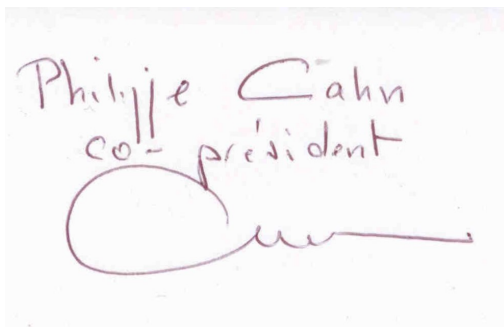 Philippe Cahn
co-président